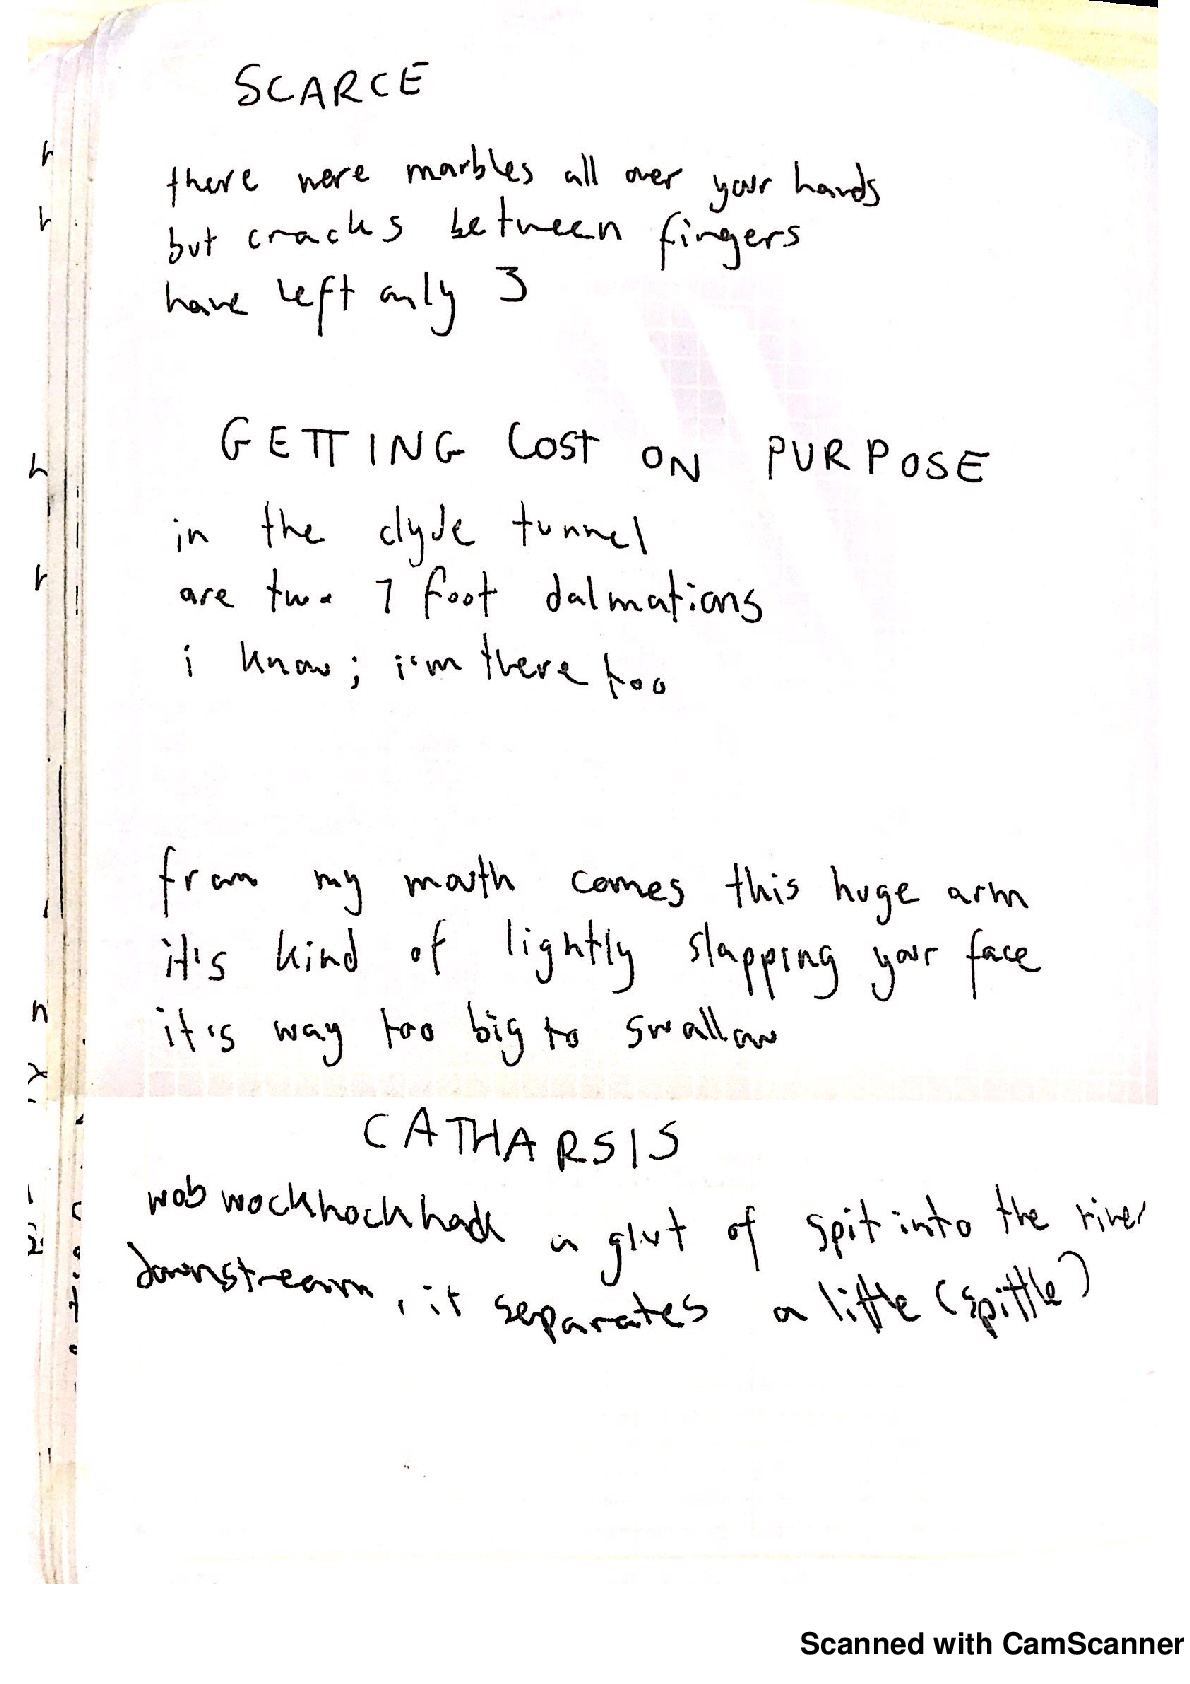 SCARCE
there were marbles all over your hands
but cracks between fingers
have left only 3
GETTING LOST ON PURPOSE
in the clyde tunnel
are two 7 foot dalmations
i know; i'm there too
from my mouth comes this huge arm
it's kind of lightly slapping your face
it's way too big to swallow
CATHARSIS
a glut of spit into the river
downstream, it separates a little (spittle)
Scanned with CamScanner